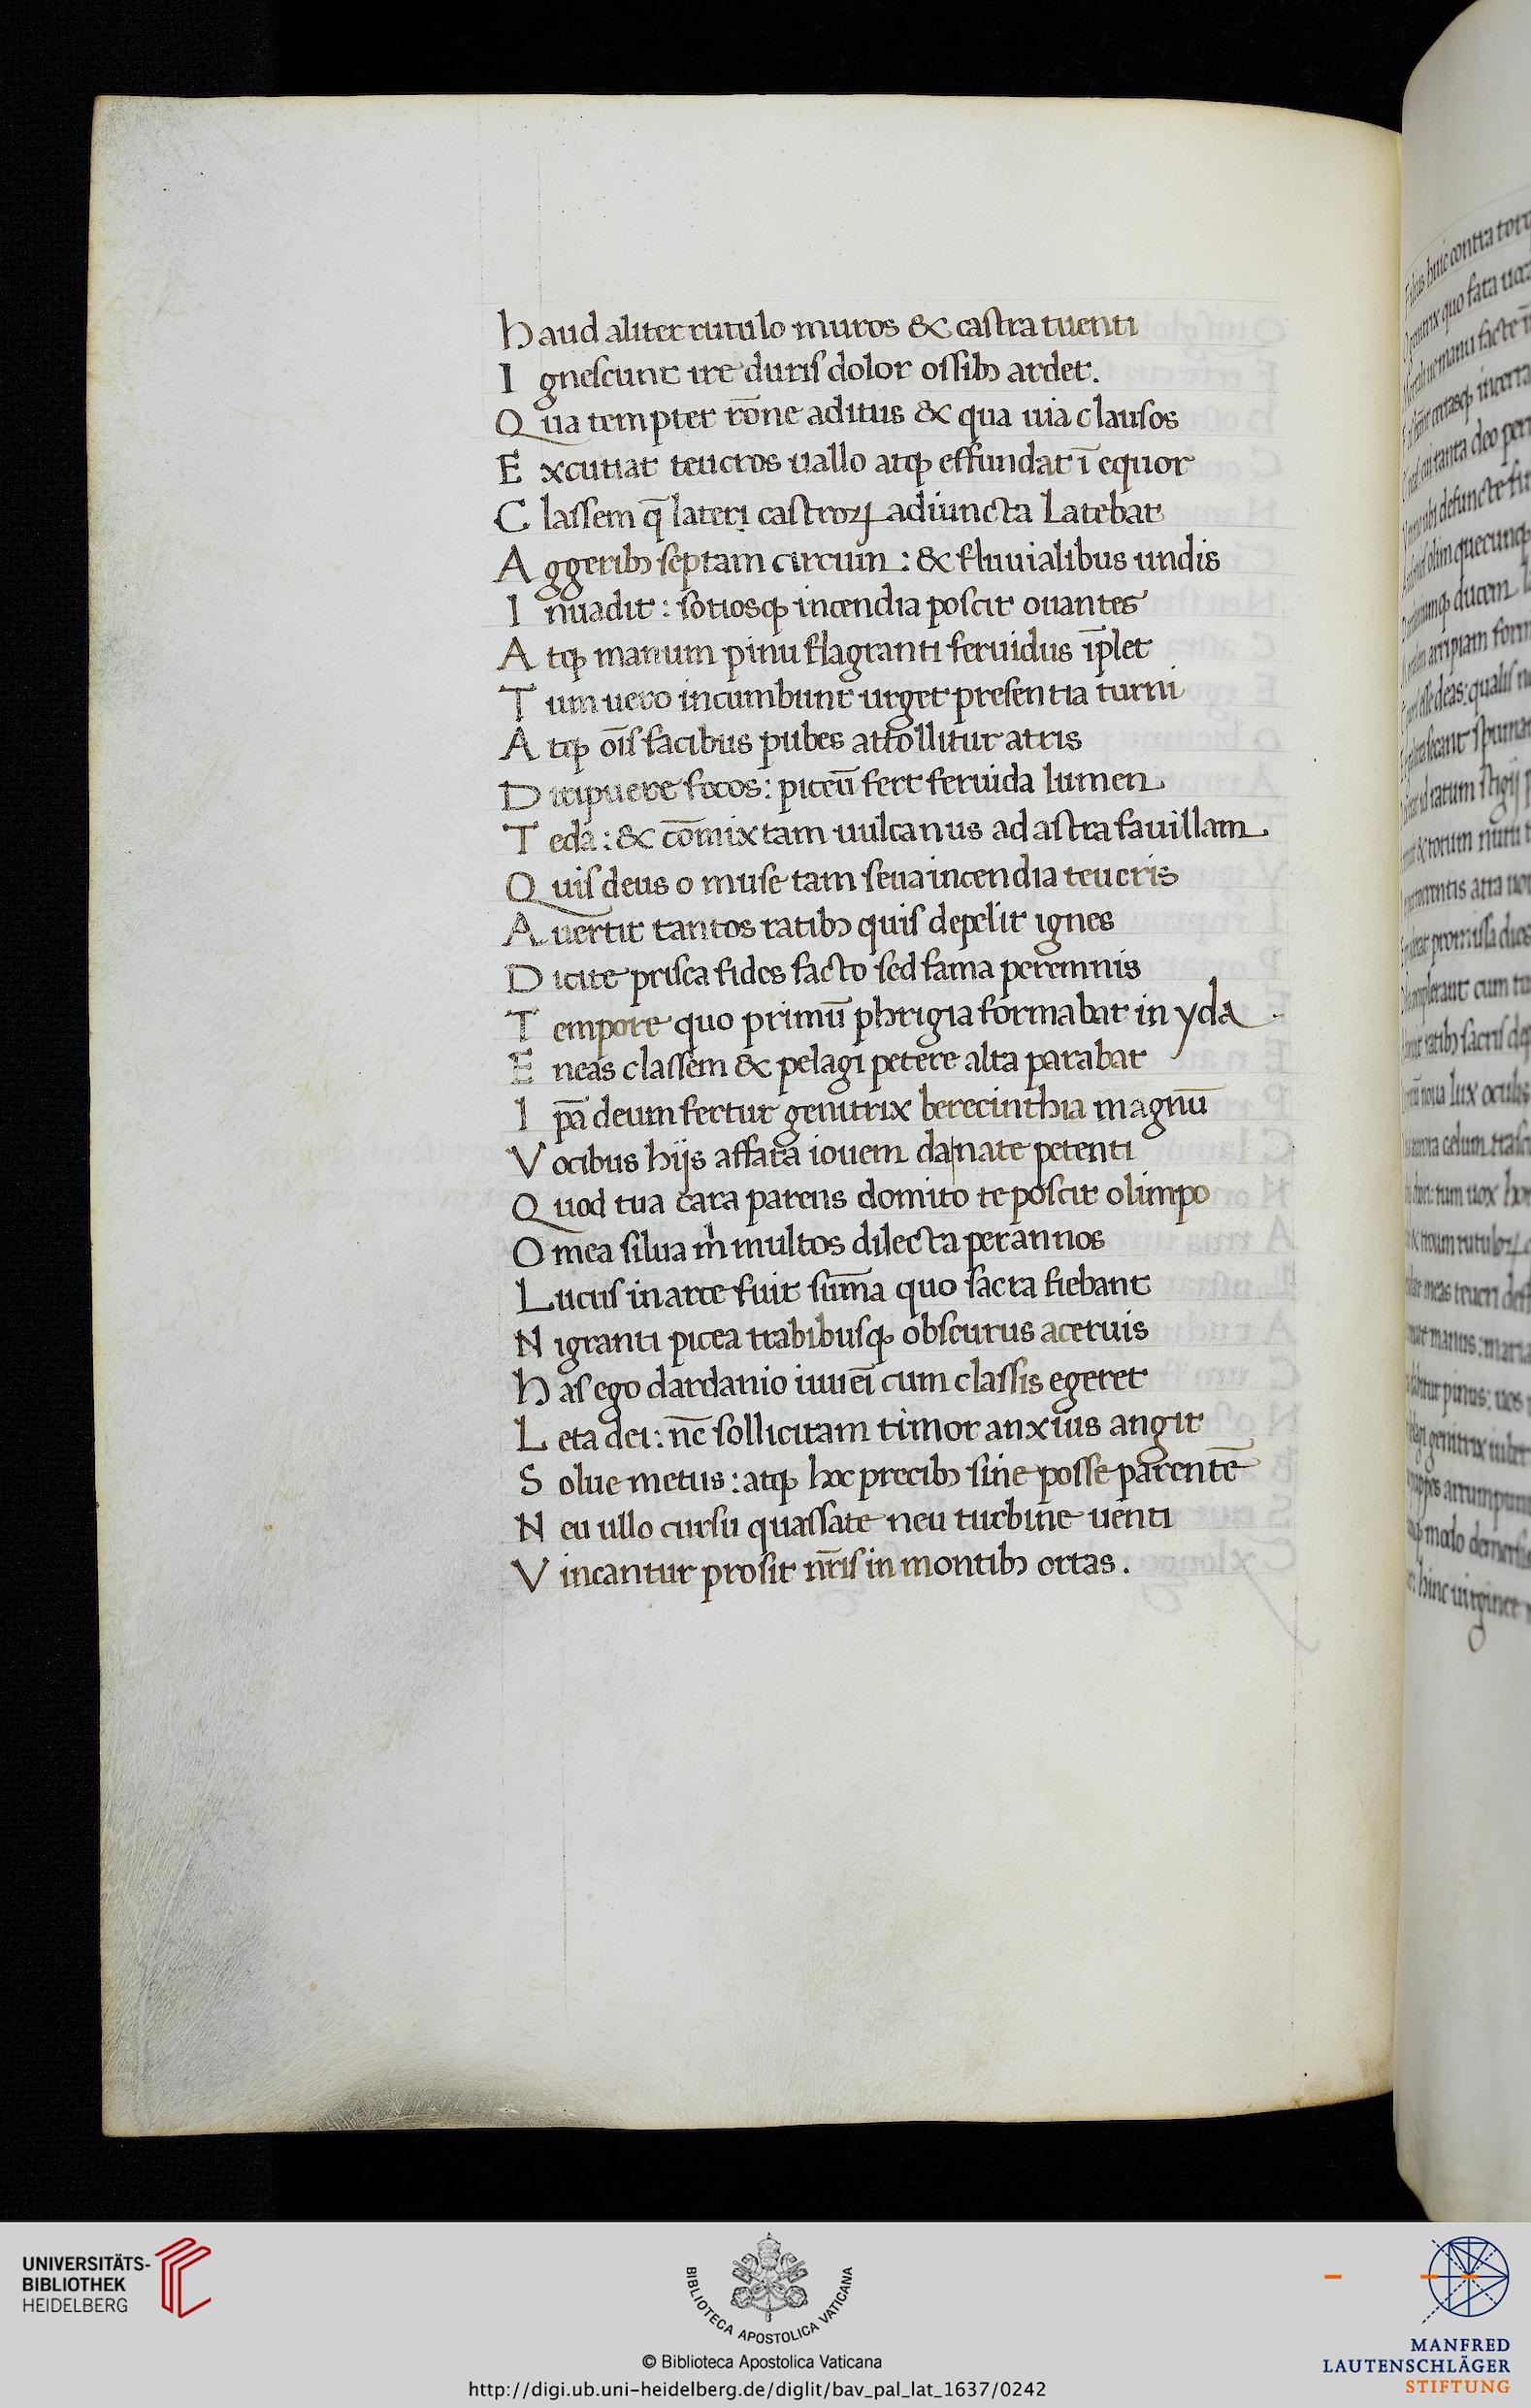 Haud aliter rutulo muros & castra tuenti
Ignescunt ire duris dolor ossibꝫ ardet.
Qua tempter rōne aditus & qua uia clausos
Excutiat teucros uallo atqꝫ effundat ī equor
Classem q̄ lateri castroꝝ adiuncta latebat
Aggeribꝫ septam circum: & fluuialibus undis
Inuadit: sotiosqꝫ incendia poscit ouantes
Atqꝫ manum pinu flagranti feruidus īplet
Tum uero incumbunt urget presentia turni
Atqꝫ oīs facibus pubes attollitur atris
Diripuere focos: piceū fert feruida lumen
Teda: & cōmixtam uulcanus ad astra fauillam
Quis deus o muse tam seua incendia teucris
Auertit tantos ratibꝫ quis depelit ignes
Dicite prisca fides facto sed fama peremnis
Tempore quo primū phrigia formabat in yda
Eneas classem & pelagi petere alta parabat
Ipā deum fertur genitrix berecinthia magnū
Vocibus hijs affata iouem da|nate petenti
Quod tua cara parens domito te poscit olimpo
O mea silua m̍ multos dilecta per annos
Lucus in arce fuit sūma quo sacra fiebant
Nigranti picea trabibusqꝫ obscurus aceruis
Has ego dardanio iuueī cum classis egeret
Leta dei: nc̄ sollicitam timor anxius angit
Solue metus: atqꝫ hoc precibꝫ sine posse parentē
Neu ullo cursu quassate neu turbine uenti
Vincantur prosit nr̄is in montibꝫ ortas.
UNIVERSITÄTS-
BIBLIOTHEK
HEIDELBERG
BIBLIOTECA APOSTOLICA VATICANA
© Biblioteca Apostolica Vaticana
http://digi.ub.uni-heidelberg.de/diglit/bav_pal_lat_1637/0242
MANFRED
LAUTENSCHLÄGER
STIFTUNG